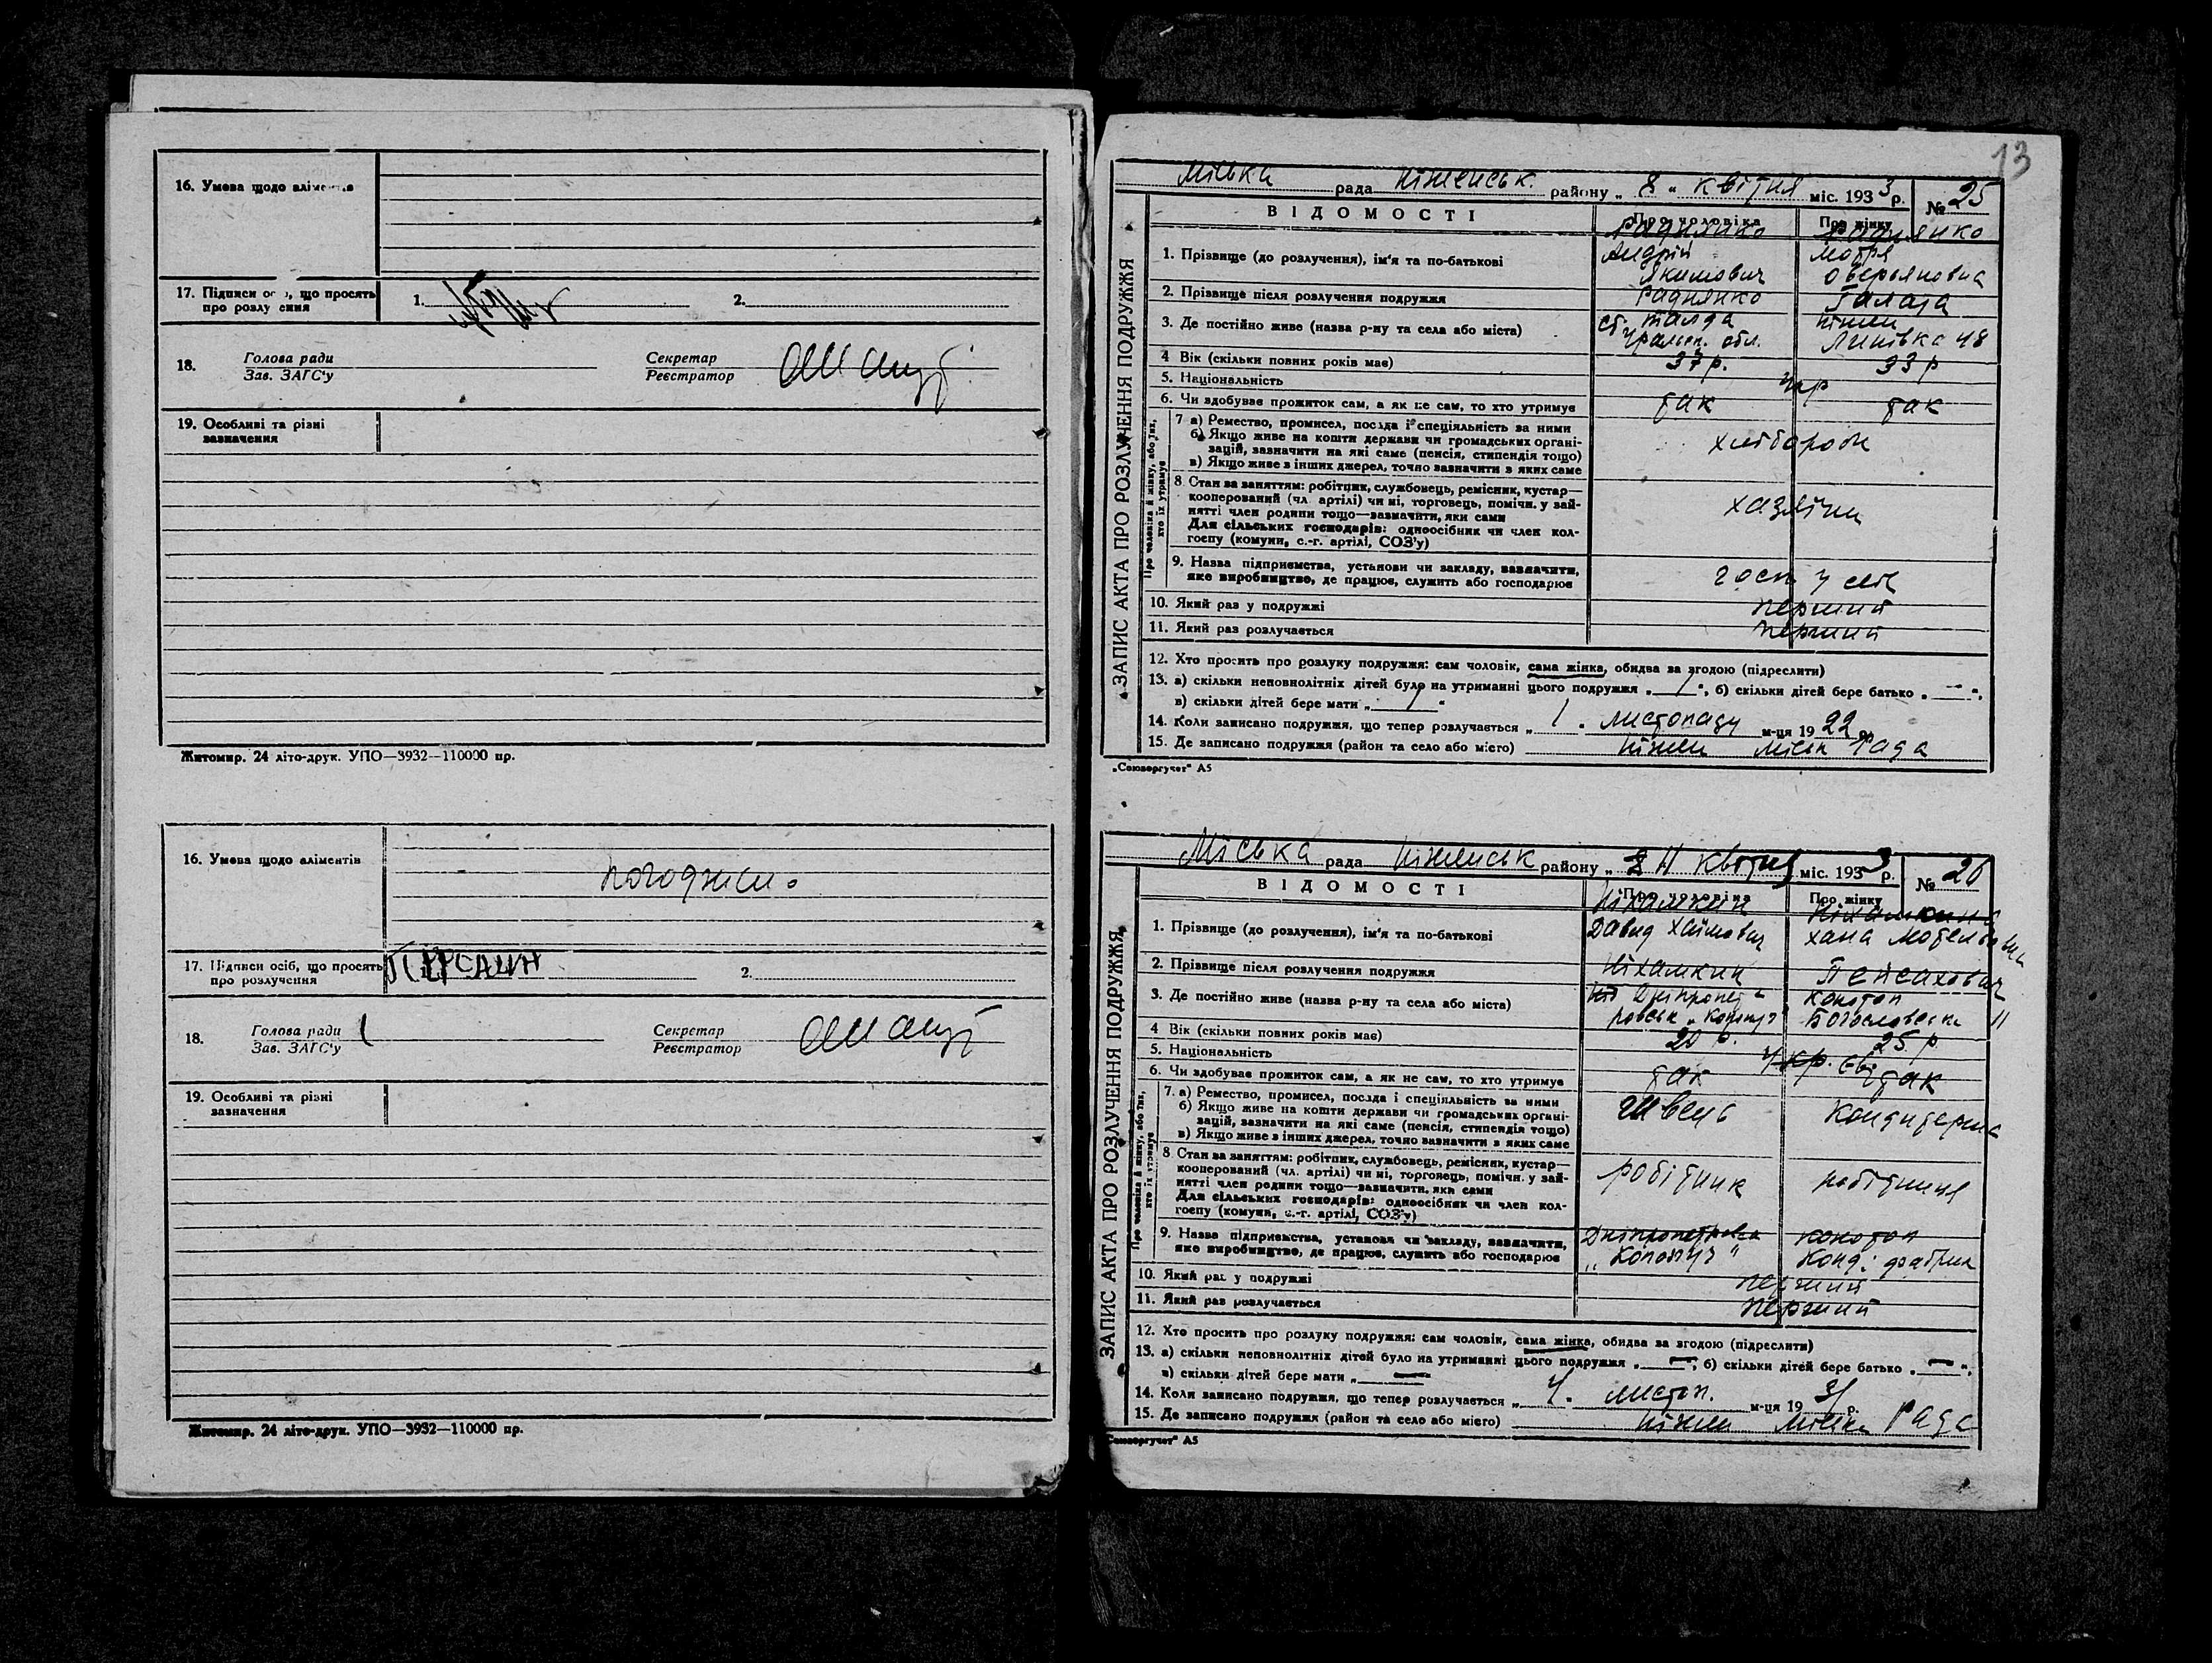 16. Умова щодо аліментів
17. Підписи осіб, що просять
про розлучення
1.
2.
18.
Голова ради
Зав. ЗАГС'у
Секретар
Реєстратор
19. Особливі та різні
зазначення
Житомир. 24 літо-друк. УПО—3932—110000 пр.
16. Умова щодо аліментів
погоджено
17. Підписи осіб, що просять
про розлучення
2.
18.
Голова ради
Зав. ЗАГС'у
Секретар
Реєстратор
19. Особливі та різні
зазначення
Житомир. 24 літо-друк. УПО—3932—110000 пр.
13
Міська рада Ніженськ. району „ 8 " квітня міс. 1933 р. № 25
ЗАПИС АКТА ПРО РОЗЛУЧЕННЯ ПОДРУЖЖЯ
ВІДОМОСТІ
Про чоловіка
Про жінку
1. Прізвище (до розлучення), ім'я та по-батькові
Андрій
Якимович
Мотря
Оверьяновна
2. Прізвище після розлучення подружжя
Раднянко
Галата
3. Де постійно живе (назва р-ну та села або міста)
ст. Талда
Уральск. обл.
Ніжен
Липівка 48
4 Вік (скільки повних років має)
37 р.
33 р
5. Національність
укр
6. Чи здобуває прожиток сам, а як не сам, то хто утримує
так
так
Про чоловіка й жінку, або тих, хто їх утримує
7 а) Ремество, промисел, посада і спеціяльність за ними
б) Якщо живе на кошти держави чи громадських органі-
зацій, зазначити на які саме (пенсія, стипендія тощо)
в) Якщо живе в інших джерел, точно зазначити з яких саме
хлібороби
8 Стан за заняттям: робітник, службовець, ремісник, кустар—
кооперований (чл. артілі) чи ні, торговець, помічн. у зай-
нятті член родини тощо—зазначити, яки сами
Для сільських господарів: одноосібник чи член кол-
госпу (комуни, с.-г. артілі, СОЗ'у)
хазяїни
9. Назва підприємства, установи чи закладу, зазначити,
яке виробництво, де працює, служить або господарює
госп у селі
10. Який раз у подружжі
перший
11. Який раз розлучається
перший
12. Хто просить про розлуку подружжя: сам чоловік, сама жінка, обидва за згодою (підреслити)
13. а) скільки неповнолітніх дітей було на утриманні цього подружжя „ 1 ", б) скільки дітей бере батько „ — ",
в) скільки дітей бере мати „ 1 "
14. Коли записано подружжя, що тепер розлучається „ 1 . листопаду м-ця 1922 р.
15. Де записано подружжя (район та село або місто) Ніжен Міськ Рада
„Союзоргучет" А5
Міська рада Ніженськ району „ 8 " квітня міс. 1933 р. № 26
ЗАПИС АКТА ПРО РОЗЛУЧЕННЯ ПОДРУЖЖЯ
ВІДОМОСТІ
Про чоловіка
Про жінку
1. Прізвище (до розлучення), ім'я та по-батькові
Ніхамкин
Давид Хаїмович
Хана Мотельовна
2. Прізвище після розлучення подружжя
Ніхамкин
Пейсахович
3. Де постійно живе (назва р-ну та села або міста)
Дніпропет-
ровськ
Конотоп
Богословськ 11
4 Вік (скільки повних років має)
20 р.
25 р
5. Національність
укр. євр
6. Чи здобуває прожиток сам, а як не сам, то хто утримує
так
так
Про чоловіка й жінку, або тих, хто їх утримує
7. а) Ремество, промисел, посада і спеціяльність за ними
б) Якщо живе на кошти держави чи громадських органі-
зацій, зазначити на які саме (пенсія, стипендія тощо)
в) Якщо живе з інших джерел, точно зазначити з яких саме
швець
Кондитерша
8. Стан за заняттям: робітник, службовець, ремісник, кустар—
кооперований (чл. артілі) чи ні, торговець, помічн. у зай-
нятті член родини тощо—зазначити, яки сами
Для сільських господарів: одноосібник чи член кол-
госпу (комуни, с.-г. артілі, СОЗ'у)
робітник
робітниця
9. Назва підприємства, установи чи закладу, зазначити,
яке виробництво, де працює, служить або господарює
Дніпропетровськ
Конотоп
Конд. фабрик
10. Який раз у подружжі
перший
11. Який раз розлучається
перший
12. Хто просить про розлуку подружжя: сам чоловік, сама жінка, обидва за згодою (підреслити)
13. а) скільки неповнолітніх дітей було на утриманні цього подружжя „ — ", б) скільки дітей бере батько „ — ",
в) скільки дітей бере мати „ —
14. Коли записано подружжя, що тепер розлучається „ 4 . листоп. м-ця 1931 р.
15. Де записано подружжя (район та село або місто) Ніжен Міськ Рада
Союзоргучет" А5